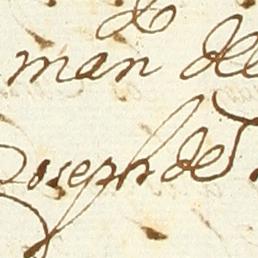 man de
Joseph de